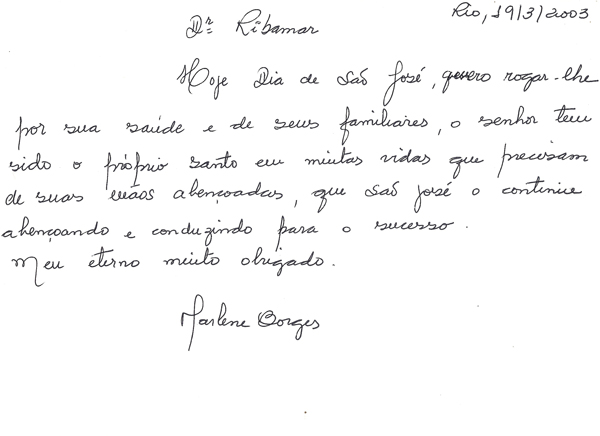 Rio, 19/3/2003
Dr. Ribamar
Hoje Dia de São José, quero rogar-lhe
por sua saúde e de seus familiares, o senhor tem
sido o próprio santo em muitas vidas que precisam
de suas mãos abençoadas, que São José o continue
abençoando e conduzindo para o sucesso.
Meu eterno muito obrigado.
Marlene Borges